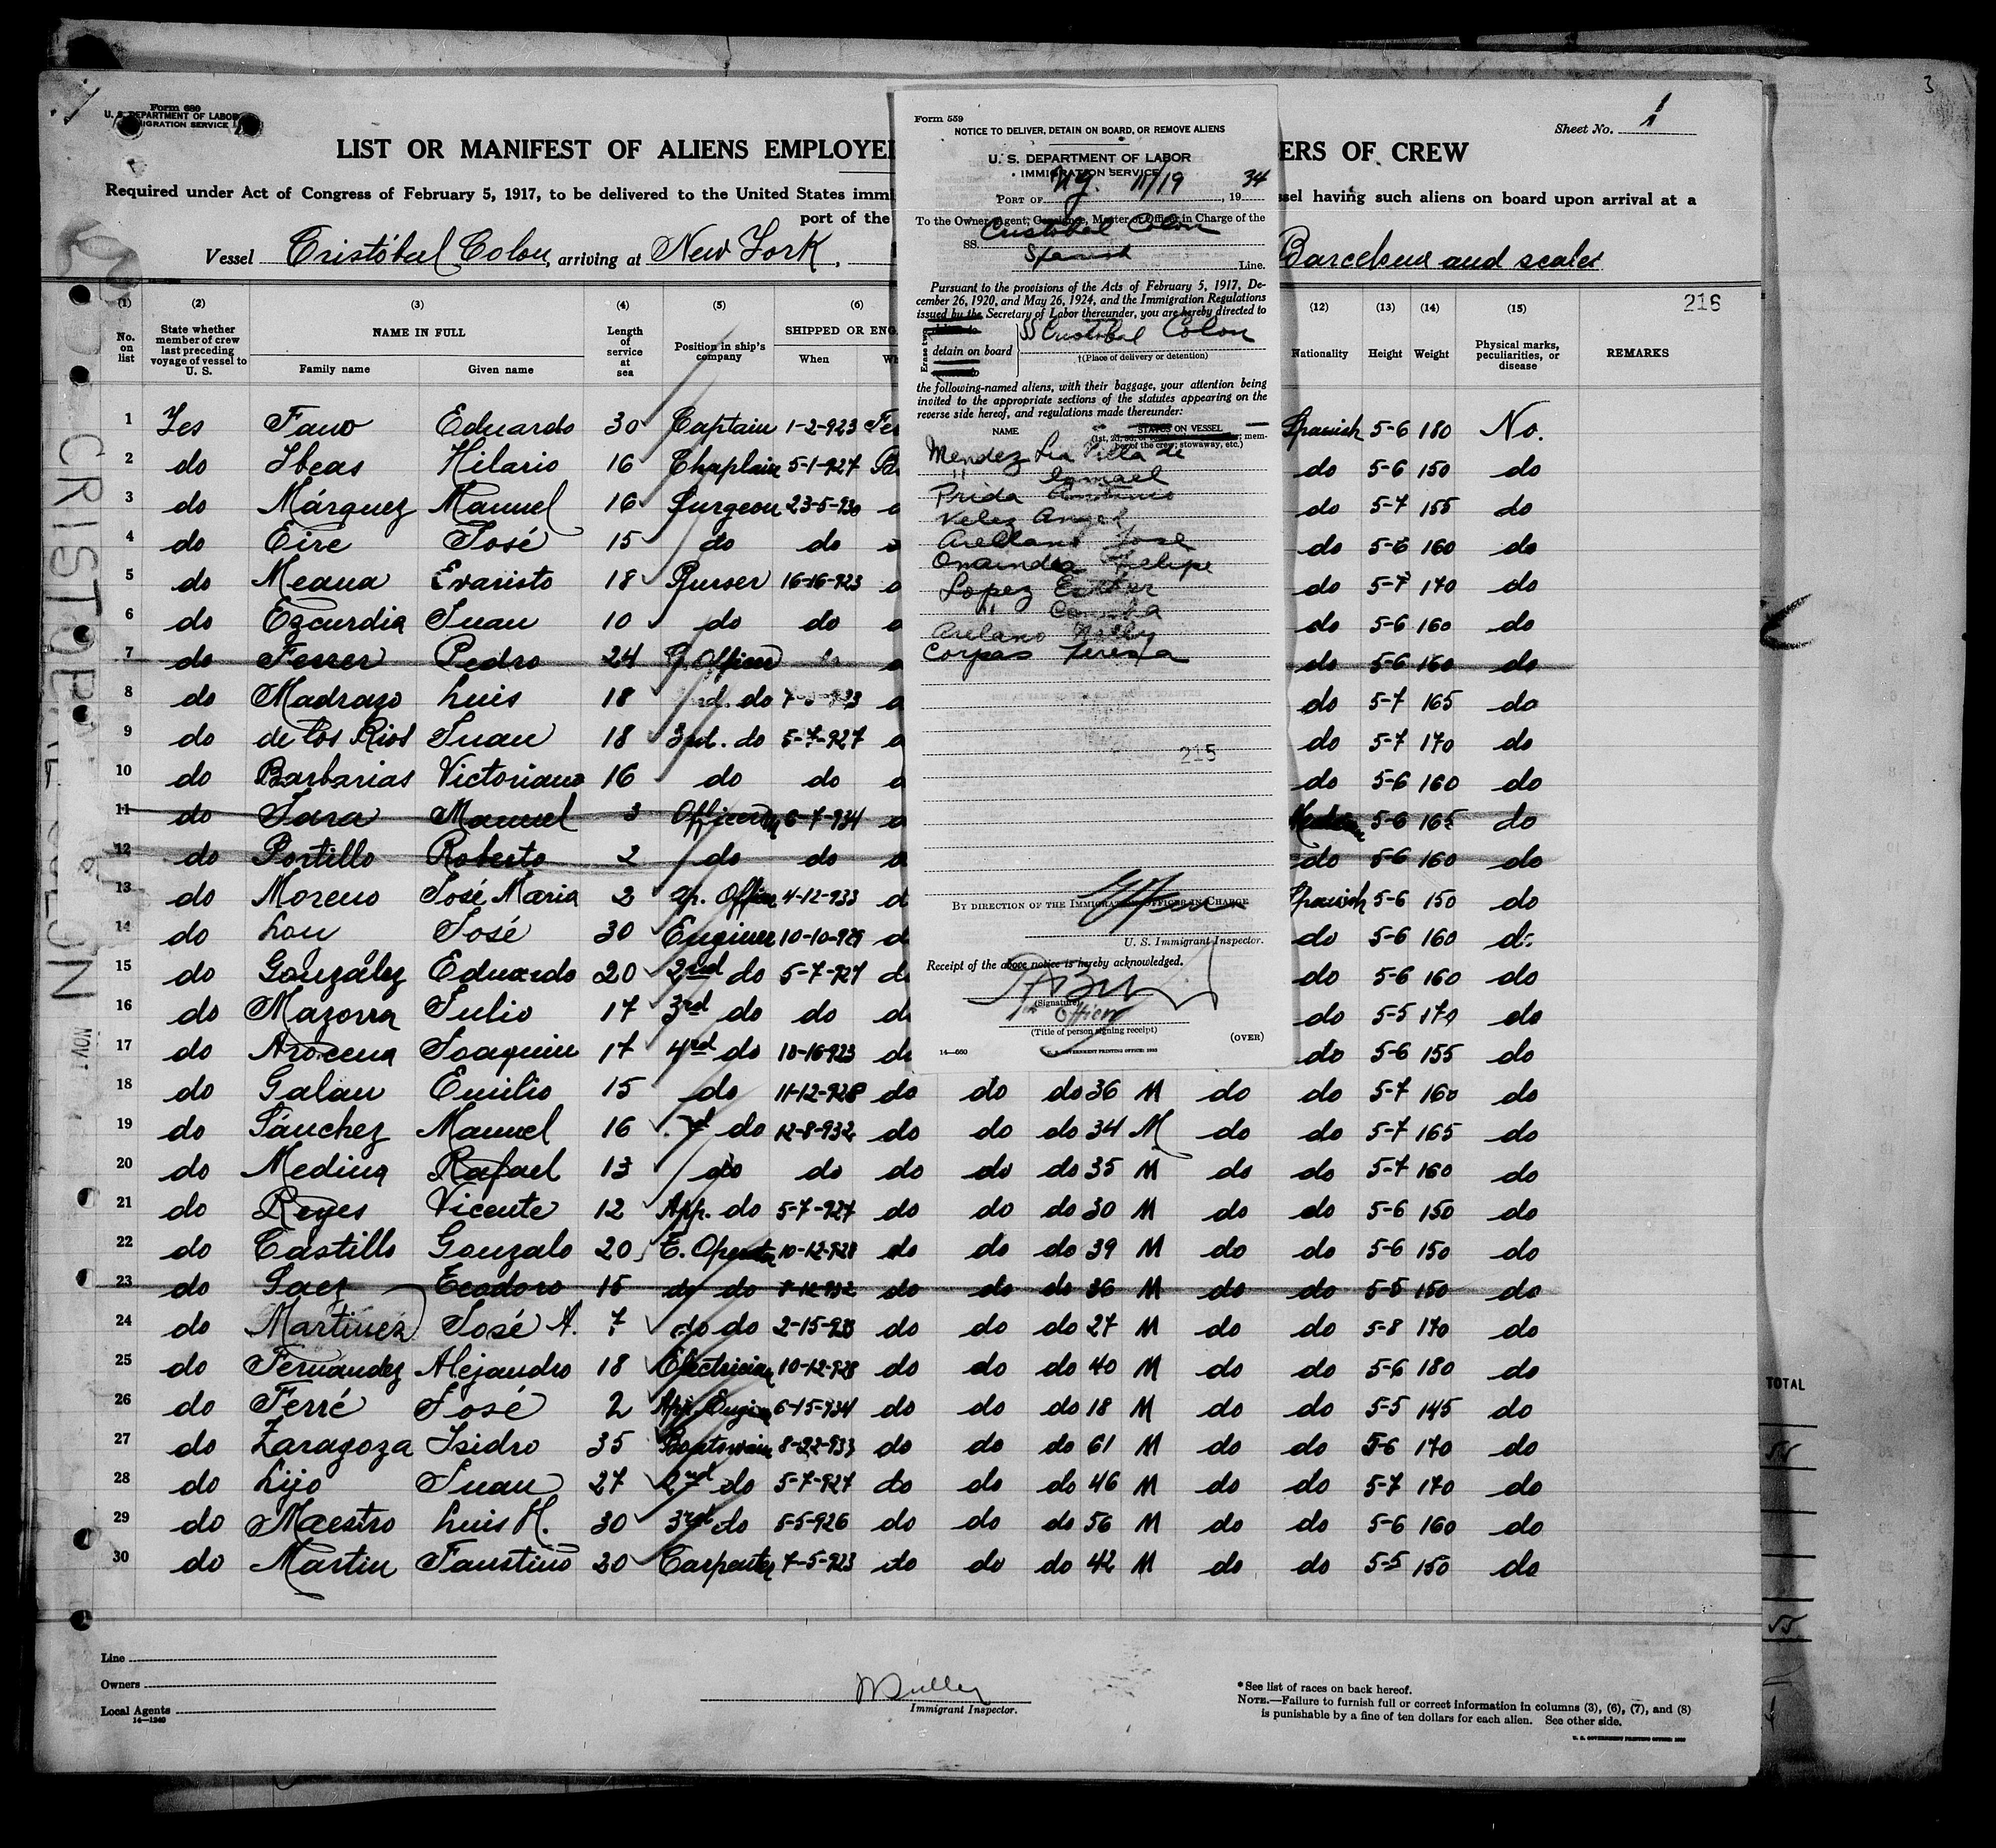 3
Form 689
U. S. DEPARTMENT OF LABOR
IMMIGRATION SERVICE
Sheet No. 1
LIST OR MANIFEST OF ALIENS EMPLOYE
ERS OF CREW
Required under Act of Congress of February 5, 1917, to be delivered to the United States immi
ssel having such aliens on board upon arrival at a
port of the
Vessel Cristóbal Colon, arriving at New York,
Barcelona and scales
216
(1) (2) (3) (4) (5) (6) (12) (13) (14) (15)
No. on list
State whether member of crew last preceding voyage of vessel to U. S.
NAME IN FULL
Family name Given name
Length of service at sea
Position in ship's company
SHIPPED OR ENG
When Wh
Nationality Height Weight
Physical marks, peculiarities, or disease
REMARKS
1 Yes Fano Eduardo 30 Captain 1-2-923 Spanish 5-6 180 No.
2 do Ibeas Hilario 16 Chaplain 5-1-927 do 5-6 150 do
3 do Márquez Manuel 16 Surgeon 23-5-930 do 5-7 155 do
4 do Eire José 15 do do do 5-6 160 do
5 do Meana Evaristo 18 Purser 16-16-923 do 5-7 170 do
6 do Ezcurdia Juan 10 do do do 5-6 160 do
7 do Ferrer Pedro 24 Officer do 5-6 160 do
8 do Madrazo Luis 18 do do 5-7 165 do
9 do de los Rios Juan 18 3rd. do 5-7-927 do 5-7 170 do
10 do Barbarias Victoriano 16 do do do 5-6 160 do
11 do Jara Manuel 3 6-7-934 5-6 165 do
12 do Portillo Roberto 2 do do do 5-6 160 do
13 do Moreno José Maria 2 Ap. Officer 4-12-933 Spanish 5-6 150 do
14 do Lou José 30 Engineer 10-10-929 do 5-6 160 do
15 do González Eduardo 20 2nd do 5-7-927 do 5-6 160 do
16 do Mazorra Julio 17 3rd do do do 5-5 170 do
17 do Arocena Joaquin 17 4rd do 10-16-923 do 5-6 155 do
18 do Galan Emilio 15 do 11-12-928 do do do 36 M do do 5-7 160 do
19 do Sánchez Manuel 16 do 12-8-932 do do do 34 M do do 5-7 165 do
20 do Medina Rafael 13 do do do do do 35 M do do 5-7 160 do
21 do Reyes Vicente 12 App. do 5-7-927 do do do 30 M do do 5-6 150 do
22 do Castillo Gonzalo 20 E. Operator 10-12-928 do do do 39 M do do 5-6 150 do
23 do Saez Teodoro 15 do do do do do 36 M do do 5-5 150 do
24 do Martinez José A. 7 do do 2-15-933 do do do 27 M do do 5-8 170 do
25 do Fernandez Alejandro 18 Electrician 10-12-928 do do do 40 M do do 5-6 180 do
26 do Ferré José 2 App. Engin 6-15-934 do do do 18 M do do 5-5 145 do
27 do Zaragoza Isidro 35 Boatswain 8-22-933 do do do 61 M do do 5-6 170 do
28 do Lijo Juan 27 2nd do 5-7-927 do do do 46 M do do 5-7 170 do
29 do Maestro Luis H. 30 3rd do 5-5-926 do do do 56 M do do 5-6 160 do
30 do Martin Faustino 20 Carpenter 7-5-923 do do do 42 M do do 5-5 150 do
Form 559
NOTICE TO DELIVER, DETAIN ON BOARD, OR REMOVE ALIENS
U. S. DEPARTMENT OF LABOR
IMMIGRATION SERVICE
PORT OF N.Y. 11/19, 1934
To the Owner, Agent, Consignee, Master or Officer in Charge of the
SS. Cristobal Colon
Spanish Line.
Pursuant to the provisions of the Acts of February 5, 1917, De-
cember 26, 1920, and May 26, 1924, and the Immigration Regulations
issued by the Secretary of Labor thereunder, you are hereby directed to
detain on board SS Cristobal Colon
†(Place of delivery or detention)
the following-named aliens, with their baggage, your attention being
invited to the appropriate sections of the statutes appearing on the
reverse side hereof, and regulations made thereunder:
NAME STATUS ON VESSEL
ber of the crew; stowaway, etc.)
Mendez Lia Villa de
" Ismael
Prida Antonio
Velez Angel
Arellano Jose
Onaindia Felipe
Lopez Esther
"
Arelano Nelly
Corpas Teresa
215
BY DIRECTION OF THE IMMIGRATION OFFICER IN CHARGE
U. S. Immigrant Inspector.
Receipt of the above notice is hereby acknowledged.
(Signature)
1st Officer
(Title of person signing receipt)
(OVER)
14—660 U. S. GOVERNMENT PRINTING OFFICE: 1933
CRISTOBAL COLON
NOV
TOTAL
55
55
Line
Owners
Local Agents
14—1240
Immigrant Inspector.
*See list of races on back hereof.
NOTE.—Failure to furnish full or correct information in columns (3), (6), (7), and (8)
is punishable by a fine of ten dollars for each alien. See other side.
U. S. GOVERNMENT PRINTING OFFICE: 1933